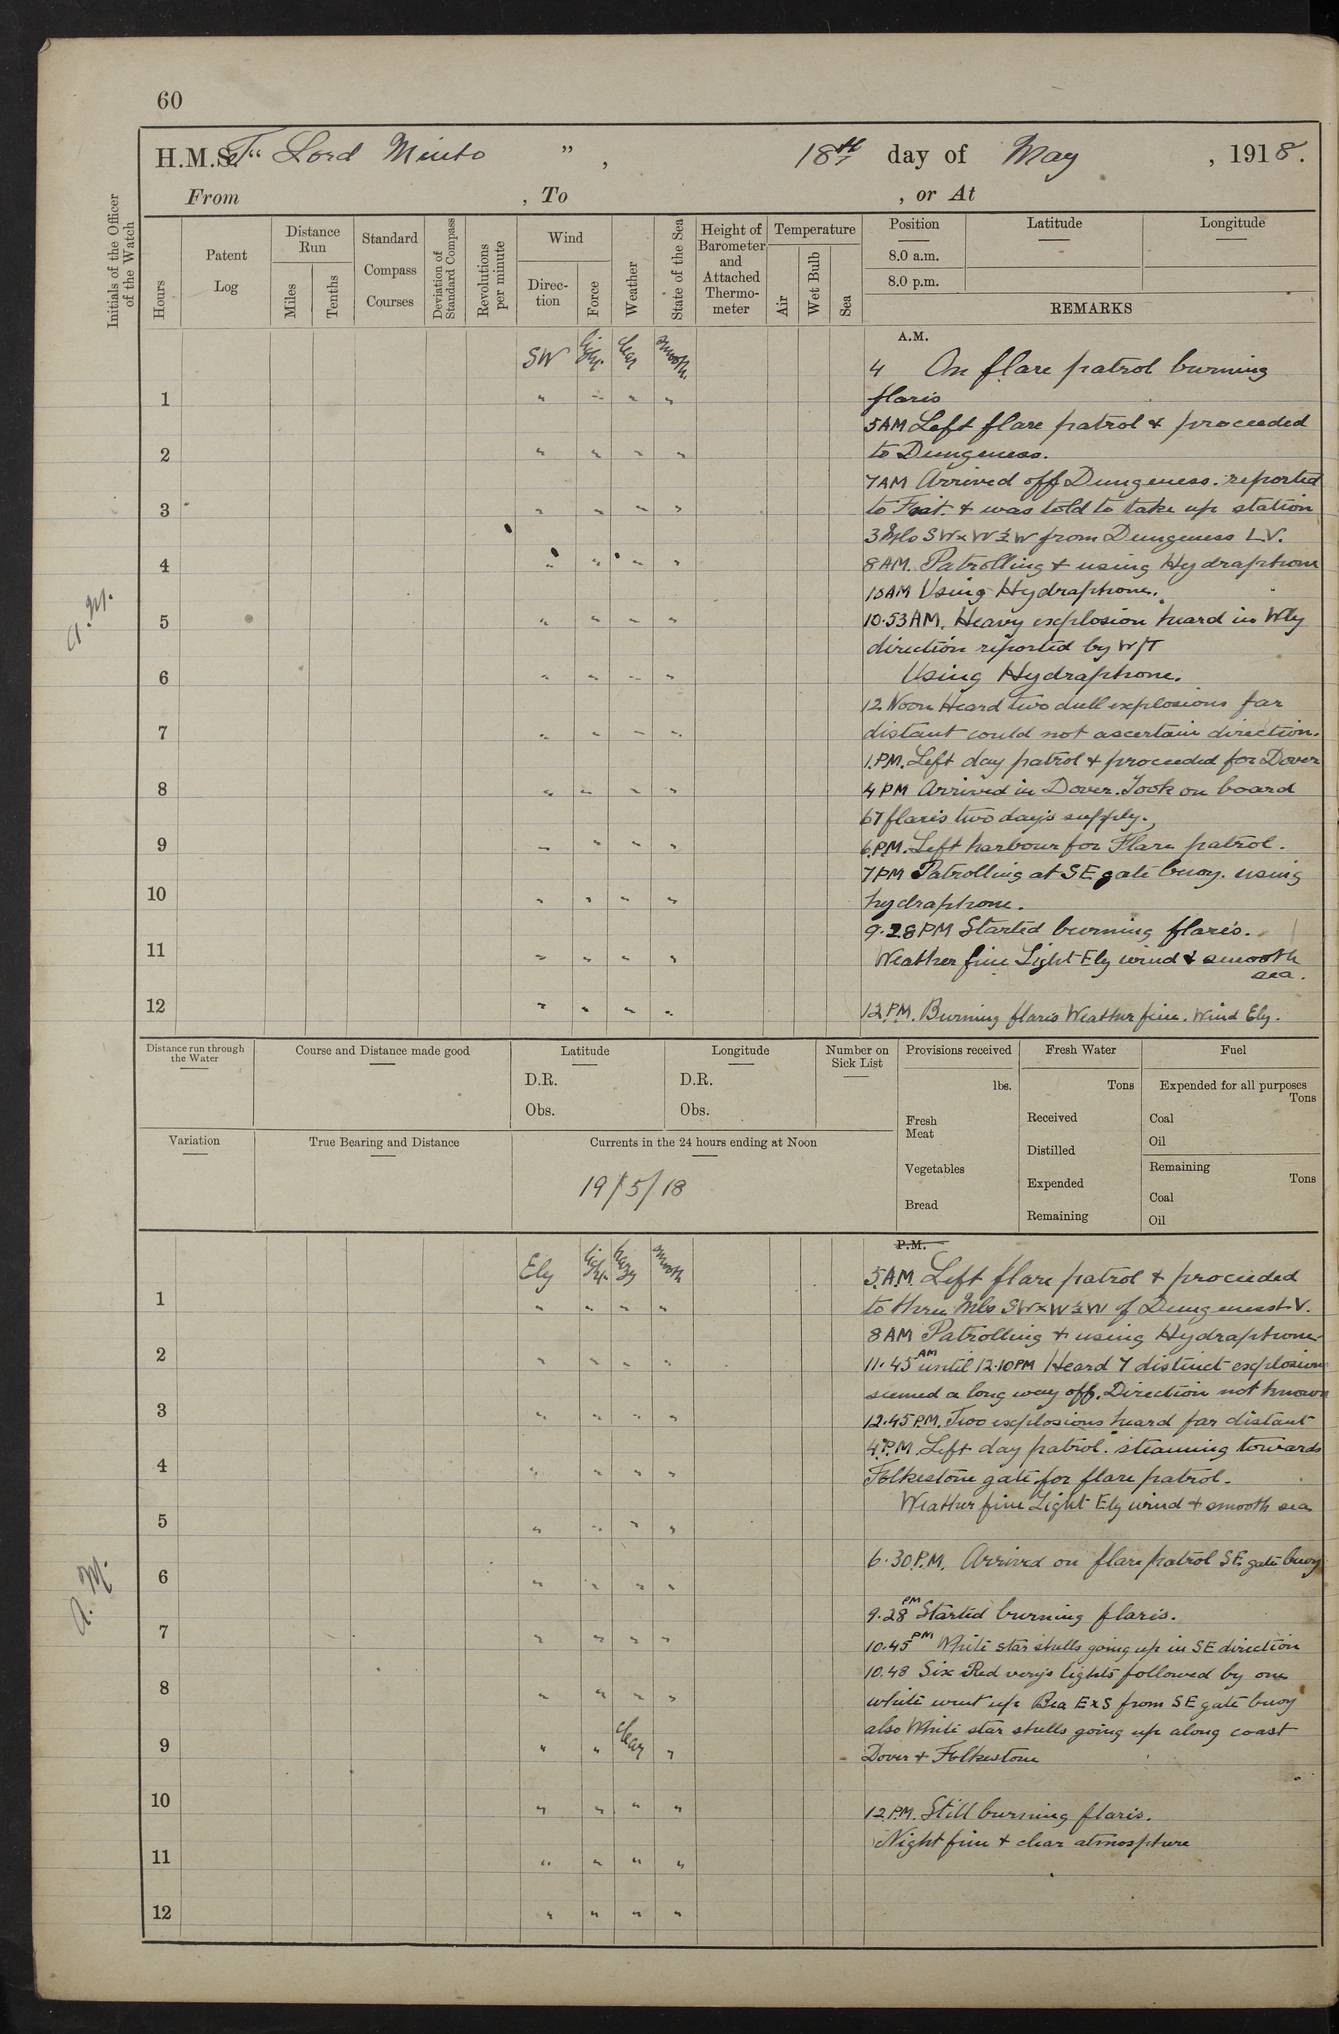 60
H.M.S.T. " Lord Minto " , 18th day of May , 1918.
From , To , or At
Initials of the Officer of the Watch
Hours
Patent Log
Distance Run
Miles
Tenths
Standard Compass Courses
Deviation of Standard Compass
Revolutions per minute
Wind
Direction
Force
Weather
State of the Sea
Height of Barometer and Attached Thermometer
Temperature
Air
Wet Bulb
Sea
Position Latitude Longitude
8.0 a.m.
8.0 p.m.
REMARKS
A.M.
SW light clear smooth
4 On flare patrol burning
1 " " " " flares
5AM Left flare patrol & proceeded
2 " " " " to Dungeness.
7AM Arrived off Dungeness. reported
3 " " " " to & was told to take up station
3 Mls SWxW½W from Dungeness L.V.
4 " " " " 8AM. Patrolling & using Hydraphone
10AM Using Hydraphone.
A.M.
5 " " " " 10.53AM. Heavy explosion heard in Wly
direction reported by W/T
6 " " " " Using Hydraphone.
12 Noon Heard two dull explosions far
7 " " " " distant could not ascertain direction.
1.PM. Left day patrol & proceeded for Dover
8 " " " " 4PM Arrived in Dover. Took on board
67 flares two day's supply.
9 " " " " 6.PM. Left harbour for Flare patrol.
7PM Patrolling at SE gate buoy. using
10 " " " " hydraphone.
9.28PM Started burning flares.
11 " " " " Weather fine Light Ely wind & smooth
sea.
12 " " " " 12.PM. Burning flares Weather fine. Wind Ely.
Distance run through the Water
Course and Distance made good
Latitude
D.R.
Obs.
Longitude
D.R.
Obs.
Number on Sick List
Provisions received
lbs.
Fresh Meat
Vegetables
Bread
Fresh Water
Tons
Received
Distilled
Expended
Remaining
Fuel
Expended for all purposes
Tons
Coal
Oil
Remaining
Tons
Coal
Oil
Variation
True Bearing and Distance
Currents in the 24 hours ending at Noon
19/5/18
P.M.
Ely light hazy smooth
5.AM. Left flare patrol & proceeded
1 " " " " to three Mls SWxW½W of Dungeness L.V.
8AM Patrolling & using Hydraphone
2 " " " " 11.45 AM until 12.10PM Heard 7 distinct explosions
seemed a long way off. Direction not known
3 " " " " 12.45PM. Two explosions heard far distant
4.P.M. Left day patrol. steaming towards
4 " " " " Folkestone gate for flare patrol.
Weather fine Light Ely wind & smooth sea
5 " " " "
6.30P.M. Arrived on flare patrol SE gate buoy
6 " " " "
A.M.
9.28 PM Started burning flares.
7 " " " " 10.45 PM White star shells going up in SE direction
10.48 Six Red very's lights followed by one
8 " " " " white went up Bea ExS from SE gate buoy
also White star shells going up along coast
9 " " clear " Dover & Folkestone
10 " " " " 12.PM. Still burning flares.
Night fine & clear atmosphere
11 " " " "
12 " " " "